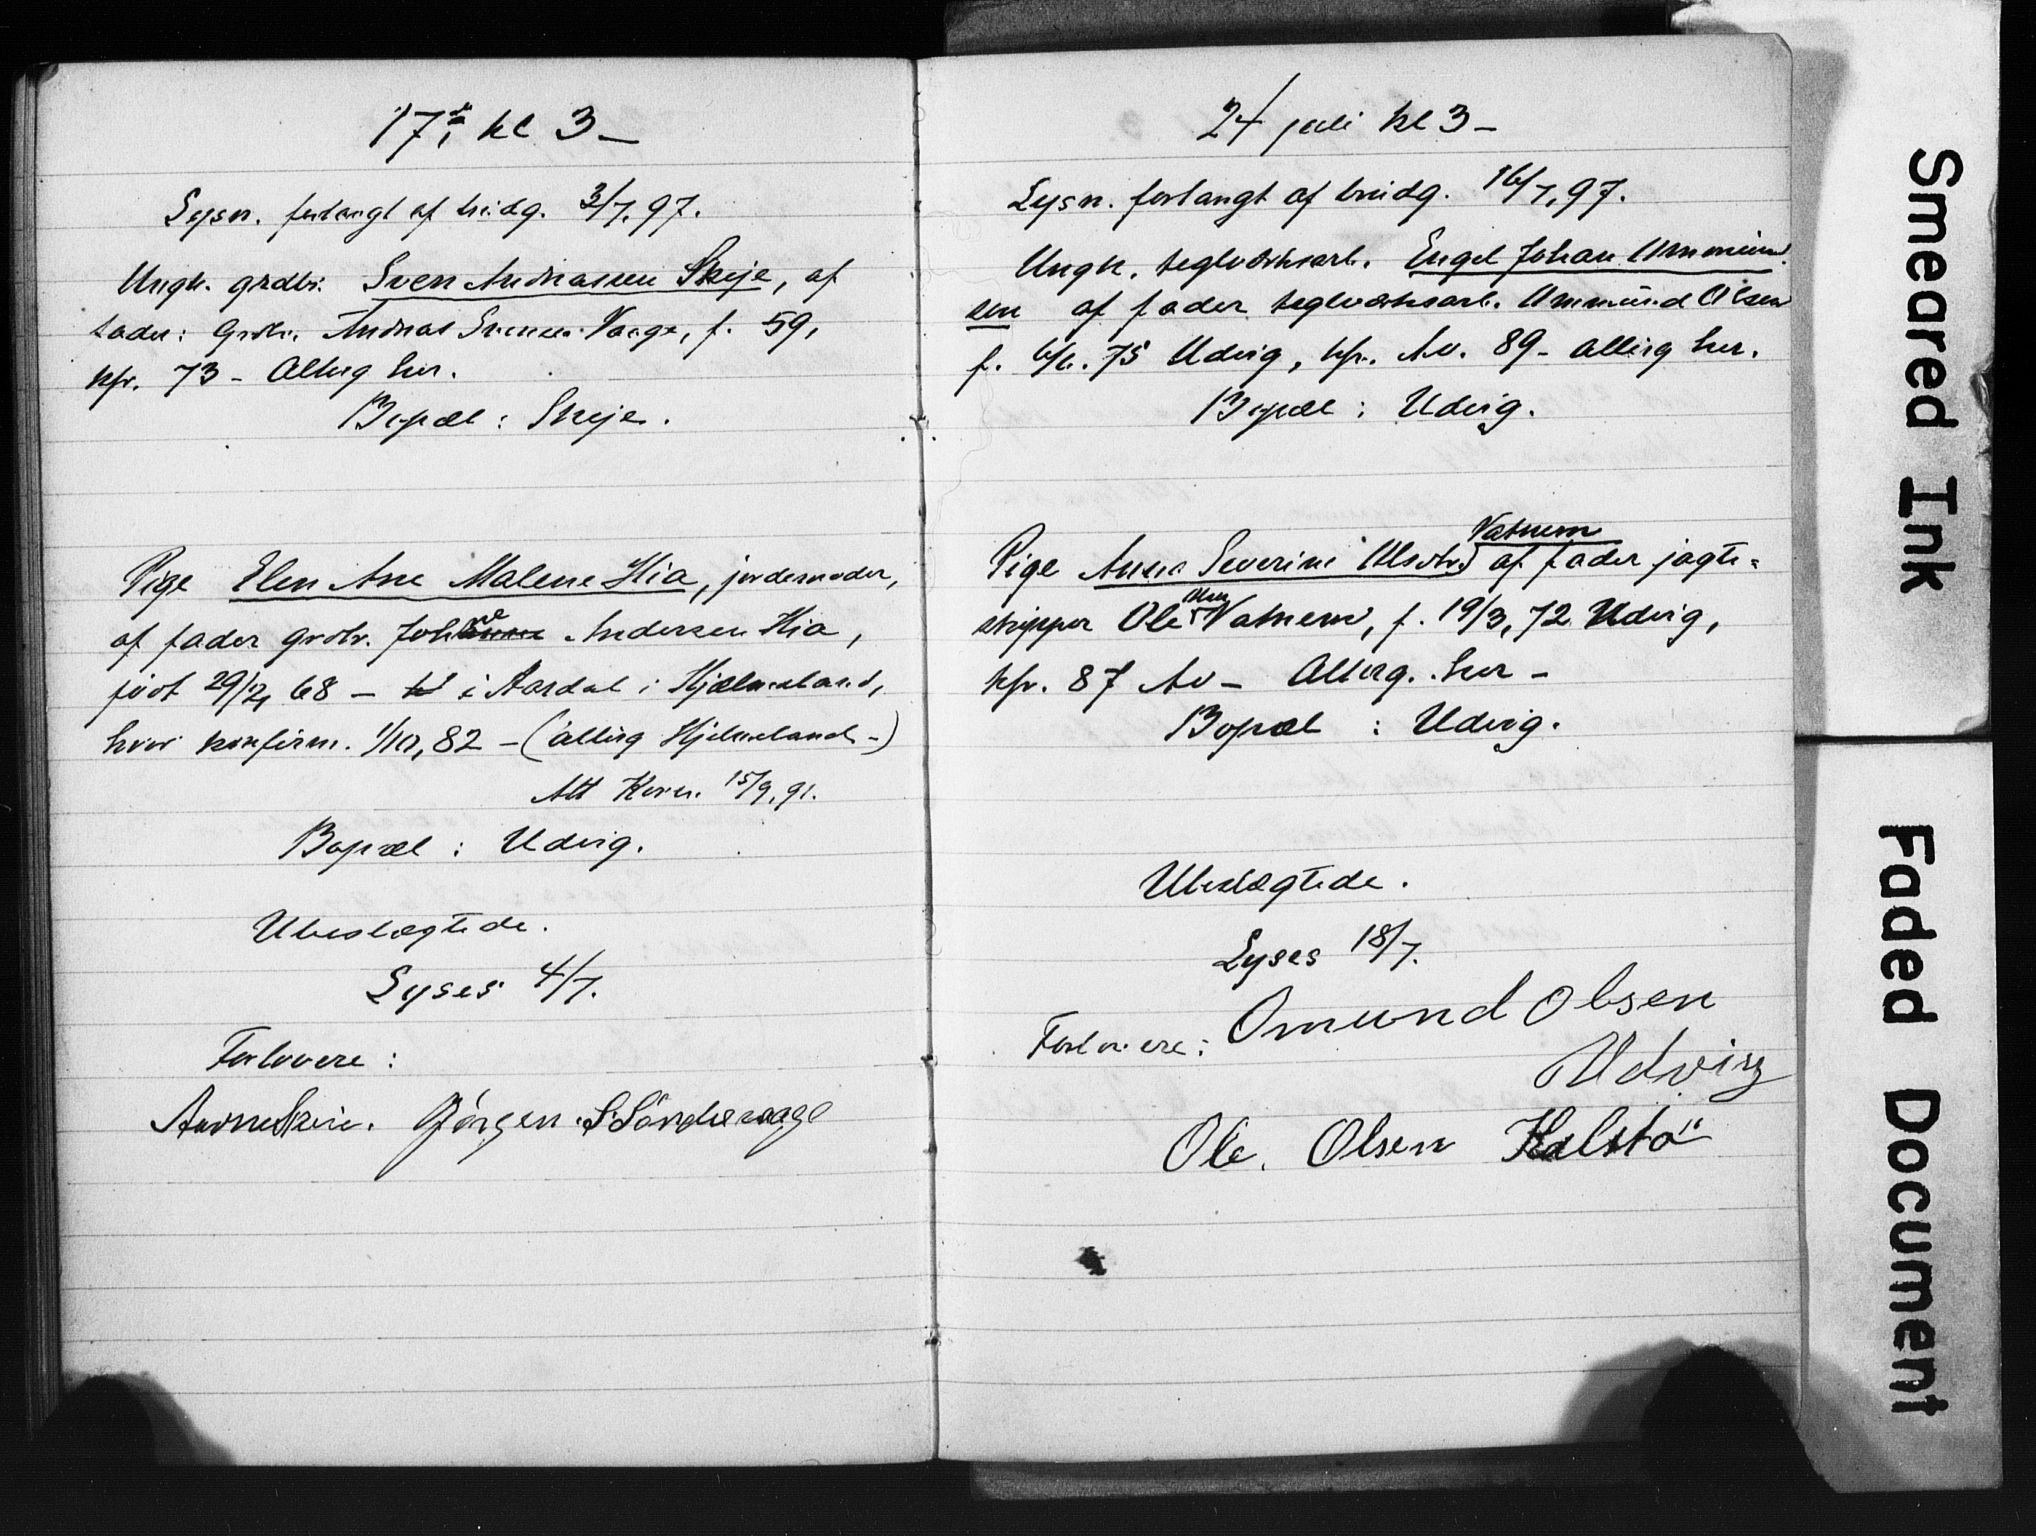 17de kl 3 —
Lysn. forlangt af brudg. 3/7, 97.
Ungk. grdbr. Sven Andreassen Skeje, af
fader: Grdbr. Andreas Svensen Vaage, f. 59,
kfr. 73 – Alberg her.
Bopæl: Skeje.
Pige Elen Ane Malene Hia, jordemoder,
af fader grdbr. Johanne Andersen Hia,
født 29/12, 68 – i Aardal i Hjelmeland,
hvor konfirm. 1/10, 82 – (alberg Hjelmeland –)
Att 15/9, 91.
Bopæl: Udvig.
Ubeslægtede.
Lyses 4/7.
Forlovere:
Jörgen S Sördevaage
24 juli kl 3 –
Lysn. forlangt af brudg. 16/7, 97.
Ungk. teglværksarb. Engel Johan Ommund
sen af fader teglværksarb. Ommund Olsen
f. 6/6. 75 Udvig, kfr. Av. 89 – alberg her.
Bopæl: Udvig.
Vatnem
Pige Anna Severine Olsdtr. af fader jagte=
skipper Ole Olsen Vatnem, f. 19/3, 72 Udvig,
kfr. 87 Av – Alberg. her –
Bopæl: Udvig.
Ubeslægtede.
Lyses 18/7.
Forlovere: Omund Olsen
Udvig
Ole. Olsen Kalstö
Smeared Ink
Faded Document